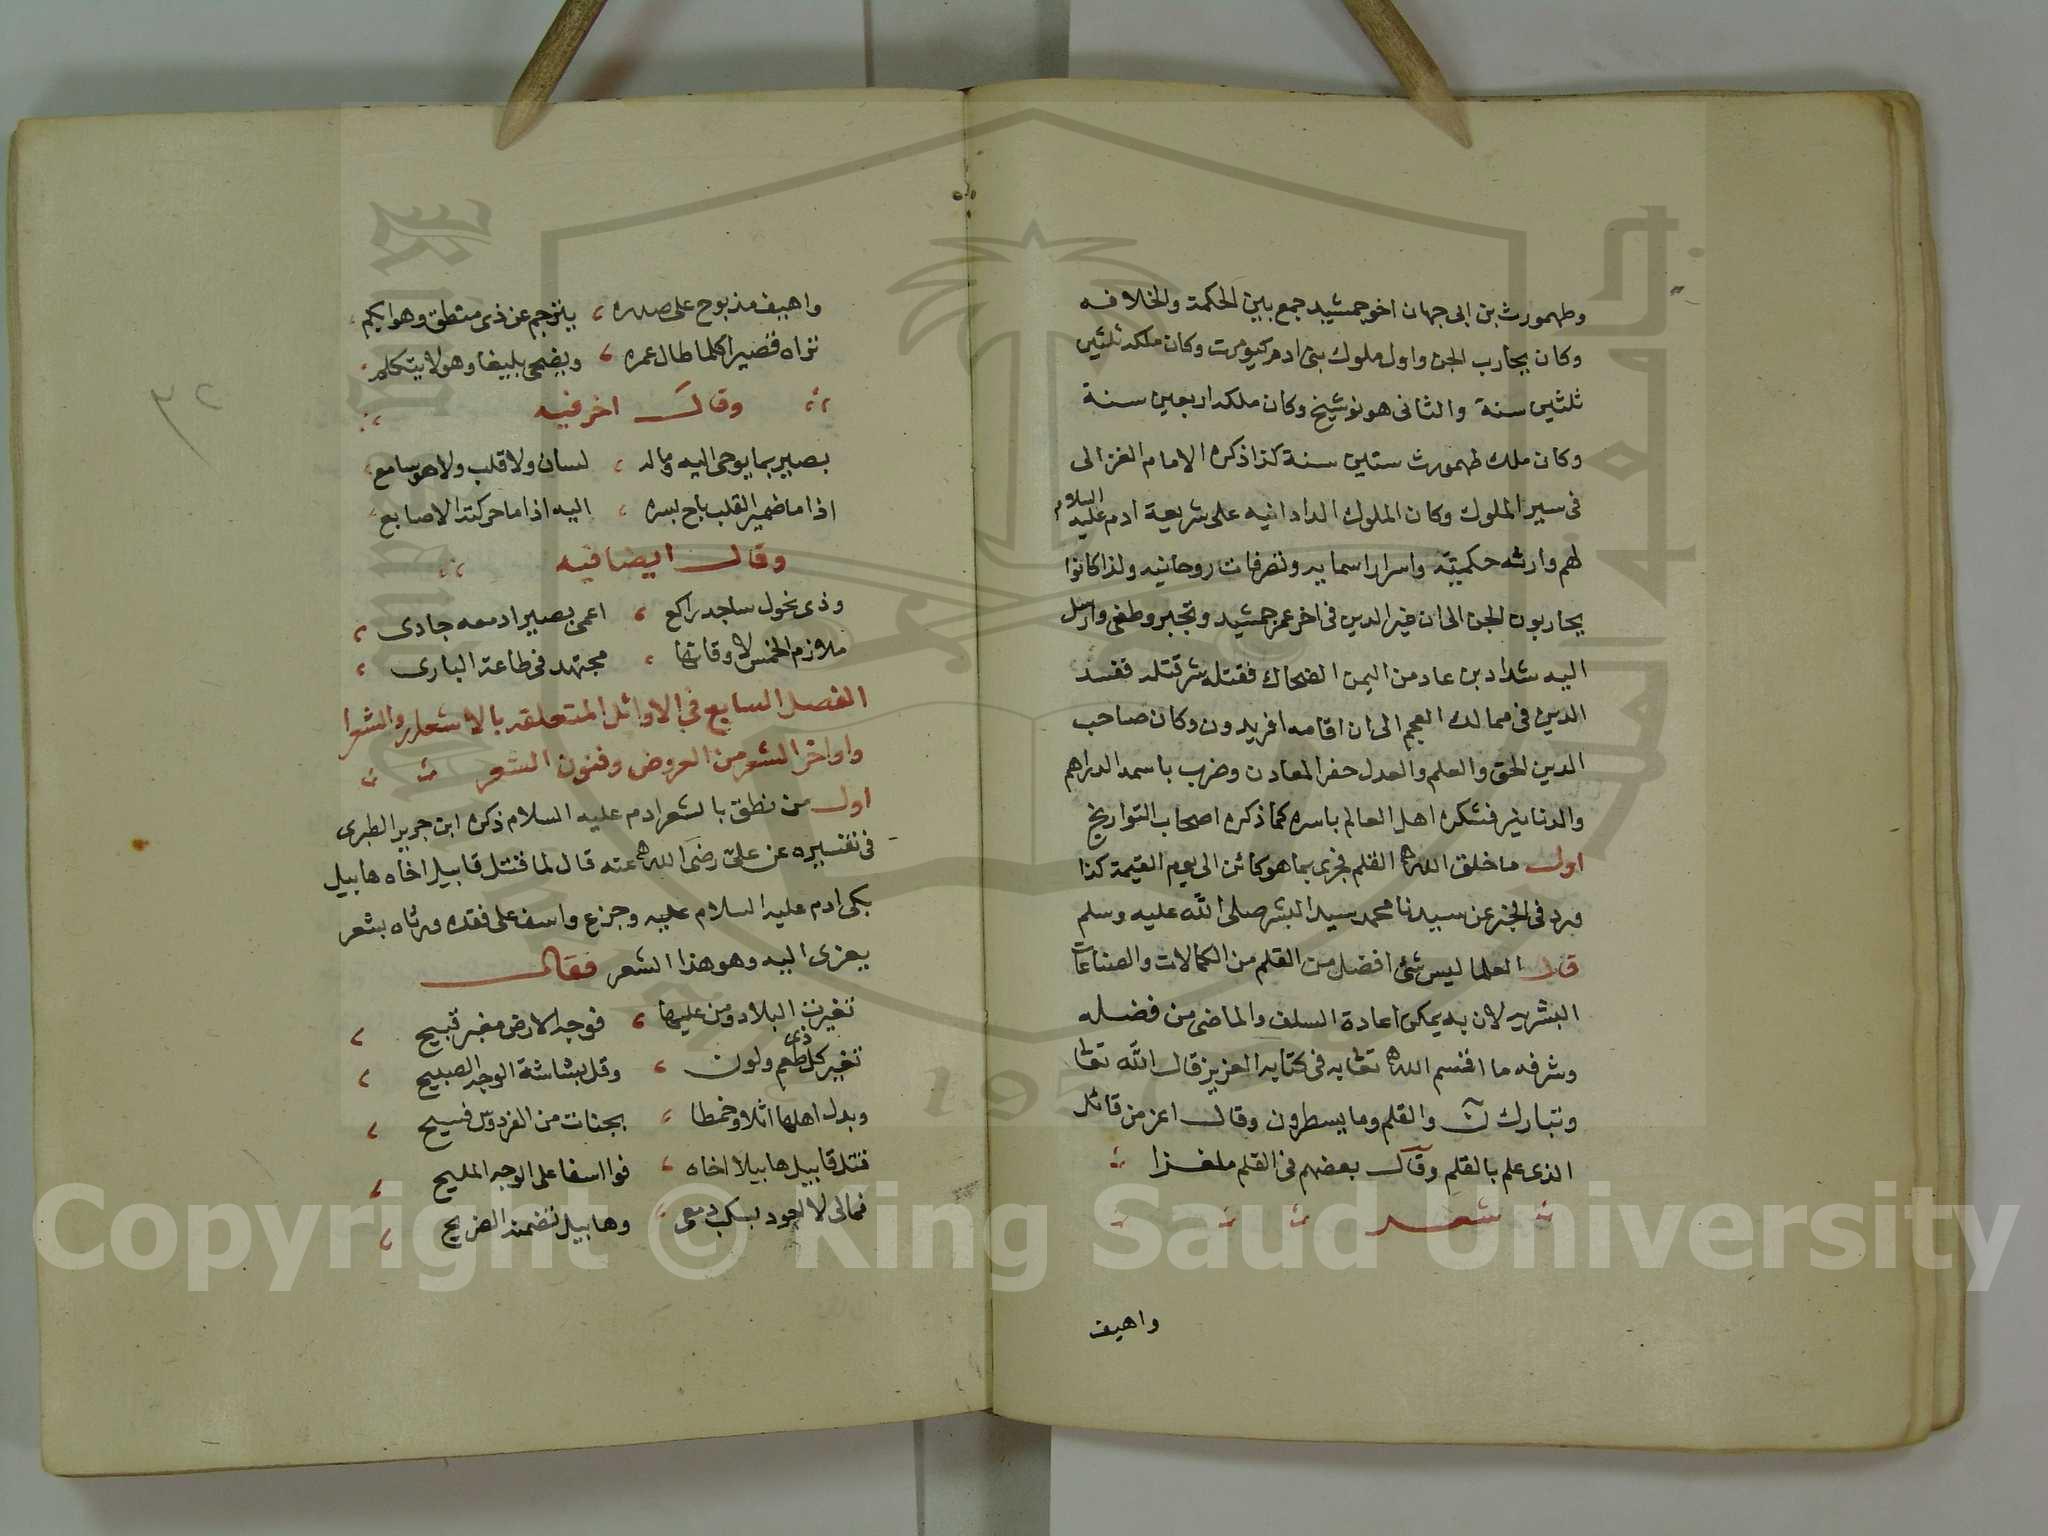 وطهمورث بن ابى جهان اخو جمشيد جمع بين الحكمة والخلافه
وكان يحارب الجن واول ملوك بنى ادم كيومرت وكان ملكه ثلثين
ثلثين سنة والثانى هونوشيخ وكان ملكه اربعين سنة
وكان ملك طهمورث ستين سنة كذا ذكره الامام الغزالى
فى سير الملوك وكان الملوك الدادانيه على شريعة ادم عليه السلام
لهم وارثه حكميّه واسرار اسمايه وتصرفات روحانيه ولذا كانوا
يحاربون الجن الى ان غير الدين فى اخر عمر جمشيد وتجبر وطغى وارسل
اليه شداد بن عاد من اليمن الضحاك فقتله شر قتله ففسد
الدين فى ممالك العجم الى ان اقامه افريدون وكان صاحب
الدين الحق والعلم والعدل حفر المعادن وضرب باسمه الدراهم
والدنانير فشكره اهل العالم باسره كما ذكره اصحاب التواريخ
اول ما خلق الله القلم فجرى بما هو كائن الى يوم القيمة كذا
ورد فى الخبر عن سيدنا محمد سيد البشر صلى الله عليه وسلم
قال العلما ليس شئ افضل من القلم من الكمالات والصناعات
البشريه لان به يمكن اعادة السلف والماضى من فضله
وشرفه ما اقسم الله تعالى به فى كتابه العزيز قال الله تعالى
وتبارك ن والقلم وما يسطرون وقال اعز من قائل
الذى علم بالقلم وقال بعضهم فى القلم ملغزا
شعر
واهيف
واهيف مذبوح على صدره ، يترجم عن ذى منطق وهو ابكم
تراه قصيرا كلما طال عمره ، ويضحى بليغا وهو لا يتكلم
وقال اخر فيه
بصير بما يوحى اليه وماله ، لسان ولا قلب ولا هو سامع
اذا ما ضمير القلب باح بسره ، اليه اذا ما حركته الاصابع
وقال ايضا فيه
وذى نحول ساجد راكع ، اعمى بصير ادمعه جارى
ملازم الخمس لاوقاتها ، مجتهد فى طاعة البارى
الفصل السابع فى الاوائل المتعلقه بالاشعار والشعرا
واواخر الشعر من العروض وفنون الشعر
اول من نطق بالشعر ادم عليه السلام ذكره ابن جرير الطبرى
فى تفسيره عن على رضى الله عنه قال لما قتل قابيل اخاه هابيل
بكى ادم عليه السلام عليه وجزع واسف على فقده ورثاه بشعر
يعزى اليه وهو هذا الشعر فقال
تغيرت البلاد ومن عليها ، فوجه الارض مغبر قبيح
تغير كل ذى طعم ولون ، وقل بشاشة الوجه الصبيح
وبدل اهلها اثلا وخمطا ، بجنات من الفردوس فسيح
قتل قابيل هابيلا اخاه ، فوا اسفا على الوجه المليح
فمالى لا اجود بسكب دمعى ، وهابيل تضمنه الضريح
٣٢
Copyright © King Saud University
1957